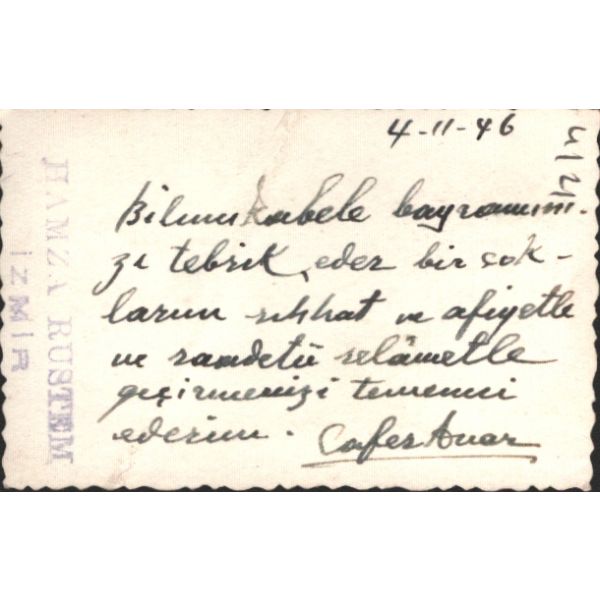 4-11-46
Bilmukabele bayramını-
zı tebrik eder bir çok-
larını sıhhat ve afiyetle
ve saadetü selâmetle
geçirmenizi temenni
ederim.
HAMZA RUSTEM
İZMİR